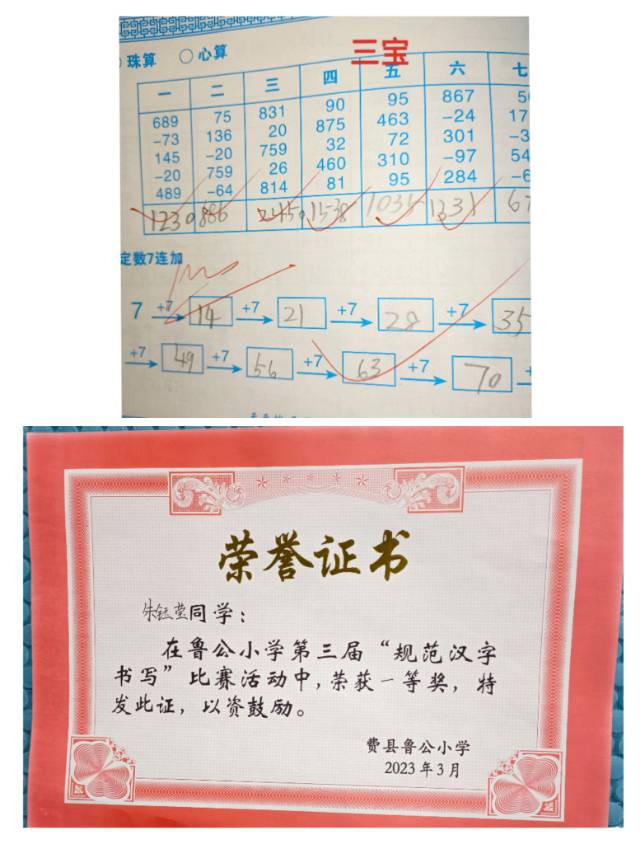 珠算 ○ 心算
三宝
一 二 三 四 五 六 七
689 75 831 90 95 867
-73 136 20 875 463 -24 17
145 -20 759 32 72 301 -3
-20 759 26 460 310 -97 54
489 -64 814 81 95 284 -6
1230 886 2450 1538 1035 1331 67
定数7连加
7 +7 14 +7 21 +7 28 +7 35
+7 49 +7 56 +7 63 +7 70
荣誉证书
朱钰莹同学：
在鲁公小学第三届“规范汉字
书写”比赛活动中，荣获一等奖，特
发此证，以资鼓励。
费县鲁公小学
2023年3月